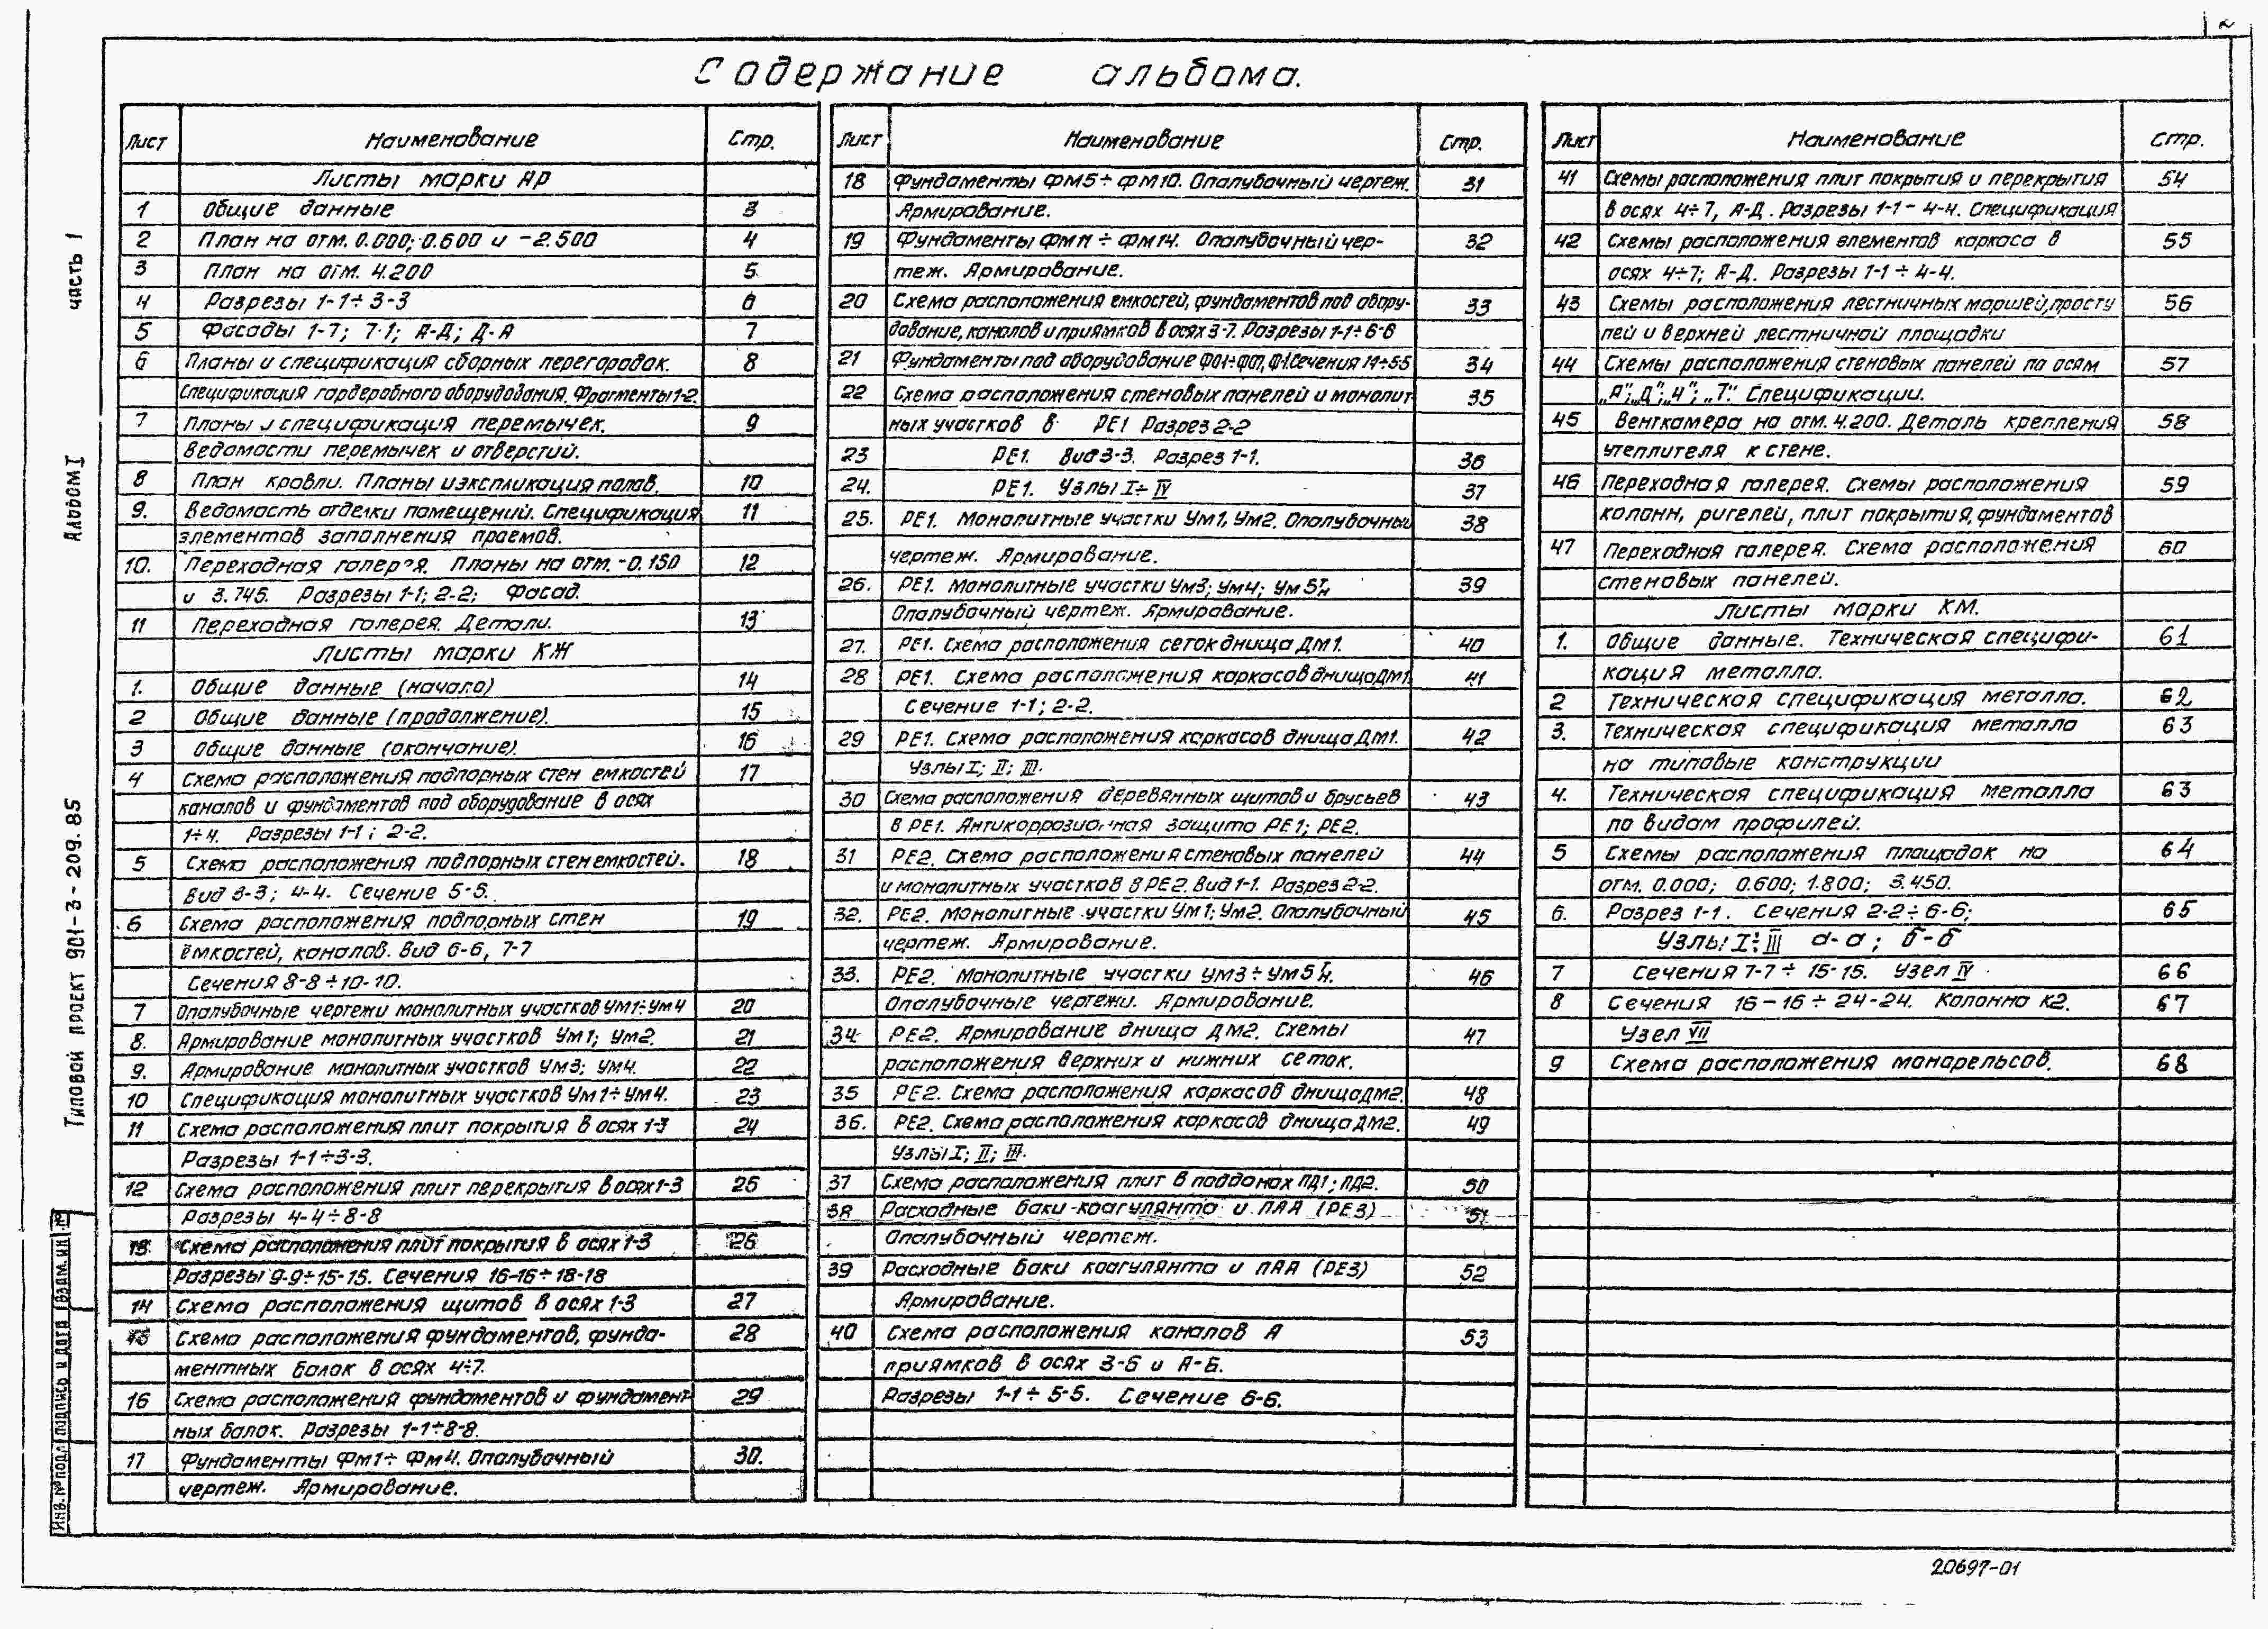 2
Содержание альбома.
Лист Наименование Стр.
Листы марки АР
1 Общие данные 3
2 План на отм. 0.000; 0.600 и -2.500 4
3 План на отм. 4.200 5
4 Разрезы 1-1÷3-3 6
5 Фасады 1-7; 7-1; А-Д; Д-А 7
6 Планы и спецификация сборных перегородок. 8
Спецификация гардеробного оборудования. Фрагменты 1-2.
7 Планы и спецификация перемычек. 9
Ведомости перемычек и отверстий.
8 План кровли. Планы и экспликация полов. 10
9. Ведомость отделки помещений. Спецификация 11
элементов заполнения проемов.
10. Переходная галерея. Планы на отм. -0.150 12
и 3.745. Разрезы 1-1; 2-2; Фасад.
11 Переходная галерея. Детали. 13
Листы марки КЖ
1. Общие данные (начало) 14
2 Общие данные (продолжение). 15
3 Общие данные (окончание). 16
4 Схема расположения подпорных стен емкостей 17
каналов и фундаментов под оборудование в осях
1÷4. Разрезы 1-1; 2-2.
5 Схема расположения подпорных стен емкостей. 18
Вид 3-3; 4-4. Сечение 5-5.
6 Схема расположения подпорных стен 19
ёмкостей, каналов. Вид 6-6, 7-7
Сечения 8-8÷10-10.
7 Опалубочные чертежи монолитных участков Ум1÷Ум4 20
8. Армирование монолитных участков Ум1; Ум2. 21
9. Армирование монолитных участков Ум3; Ум4. 22
10 Спецификация монолитных участков Ум1÷Ум4. 23
11 Схема расположения плит покрытия в осях 1-3 24
Разрезы 1-1÷3-3.
12 Схема расположения плит перекрытия в осях 1-3 25
Разрезы 4-4÷8-8
13 Схема расположения плит покрытия в осях 1-3 26
Разрезы 9-9÷15-15. Сечения 16-16÷18-18
14 Схема расположения щитов в осях 1-3 27
15 Схема расположения фундаментов, фунда- 28
ментных балок в осях 4÷7.
16 Схема расположения фундаментов и фундамент- 29
ных балок. Разрезы 1-1÷8-8.
17 Фундаменты Фм1÷Фм4. Опалубочный 30.
чертеж. Армирование.
Лист Наименование Стр.
18 Фундаменты ФМ5÷ФМ10. Опалубочный чертеж. 31
Армирование.
19 Фундаменты ФМ11÷ФМ14. Опалубочный чер- 32
теж. Армирование.
20 Схема расположения емкостей, фундаментов под обору- 33
дование, каналов и приямков в осях 3-7. Разрезы 1-1÷6-6
21 Фундаменты под оборудование Сечения 34
22 Схема расположения стеновых панелей и монолит 35
ных участков в РЕ1 Разрез 2-2
23 РЕ1. Вид 3-3. Разрез 1-1. 36
24. РЕ1. Узлы I÷IV 37
25. РЕ1. Монолитные участки Ум1, Ум2. Опалубочный 38
чертеж. Армирование.
26. РЕ1. Монолитные участки Ум3; Ум4; Ум5 39
Опалубочный чертеж. Армирование.
27. РЕ1. Схема расположения сеток днища ДМ1. 40
28 РЕ1. Схема расположения каркасов днища ДМ1. 41
Сечение 1-1; 2-2.
29 РЕ1. Схема расположения каркасов днища ДМ1. 42
Узлы I; II; III.
30 Схема расположения деревянных щитов и брусьев 43
в РЕ1. Антикоррозионная защита РЕ1; РЕ2.
31 РЕ2. Схема расположения стеновых панелей 44
и монолитных участков в РЕ2. Вид 1-1. Разрез 2-2.
32. РЕ2. Монолитные участки Ум1; Ум2. Опалубочный 45
чертеж. Армирование.
33. РЕ2. Монолитные участки Ум3÷Ум5 46
Опалубочные чертежи. Армирование.
34. РЕ2. Армирование днища ДМ2. Схемы 47
расположения верхних и нижних сеток.
35 РЕ2. Схема расположения каркасов днища ДМ2. 48
36. РЕ2. Схема расположения каркасов днища ДМ2. 49
Узлы I; II; III.
37 Схема расположения плит в поддонах ПД1; ПД2. 50
38 Расходные баки коагулянта и ПАА (РЕ3) 51
Опалубочный чертеж.
39 Расходные баки коагулянта и ПАА (РЕ3) 52
Армирование.
40 Схема расположения каналов А 53
приямков в осях 3-6 и А-Б.
Разрезы 1-1÷5-5. Сечение 6-6.
Лист Наименование Стр.
41 Схемы расположения плит покрытия и перекрытия 54
в осях 4÷7, А-Д. Разрезы 1-1-4-4. Спецификация
42 Схемы расположения элементов каркаса в 55
осях 4÷7; А-Д. Разрезы 1-1÷4-4.
43 Схемы расположения лестничных маршей, просту 56
пей и верхней лестничной площадки
44 Схемы расположения стеновых панелей по осям 57
„А"; „Д"; „4"; „7". Спецификации.
45 Венткамера на отм. 4.200. Деталь крепления 58
утеплителя к стене.
46 Переходная галерея. Схемы расположения 59
колонн, ригелей, плит покрытия, фундаментов
47 Переходная галерея. Схема расположения 60
стеновых панелей.
Листы марки КМ.
1. Общие данные. Техническая специфи- 61
кация металла.
2 Техническая спецификация металла. 62
3. Техническая спецификация металла 63
на типовые конструкции
4. Техническая спецификация металла 63
по видам профилей.
5 Схемы расположения площадок на 64
отм. 0.000; 0.600; 1.800; 3.450.
6. Разрез 1-1. Сечения 2-2÷6-6; 65
Узлы I÷III а-а; б-б
7 Сечения 7-7÷15-15. Узел IV 66
8 Сечения 16-16÷24-24. Колонна К2. 67
Узел VII
9 Схема расположения монорельсов. 68
Типовой проект 901-3-209.85 Альбом I часть 1
Инв. № подл Подпись и дата Взам. инв. №
20697-01